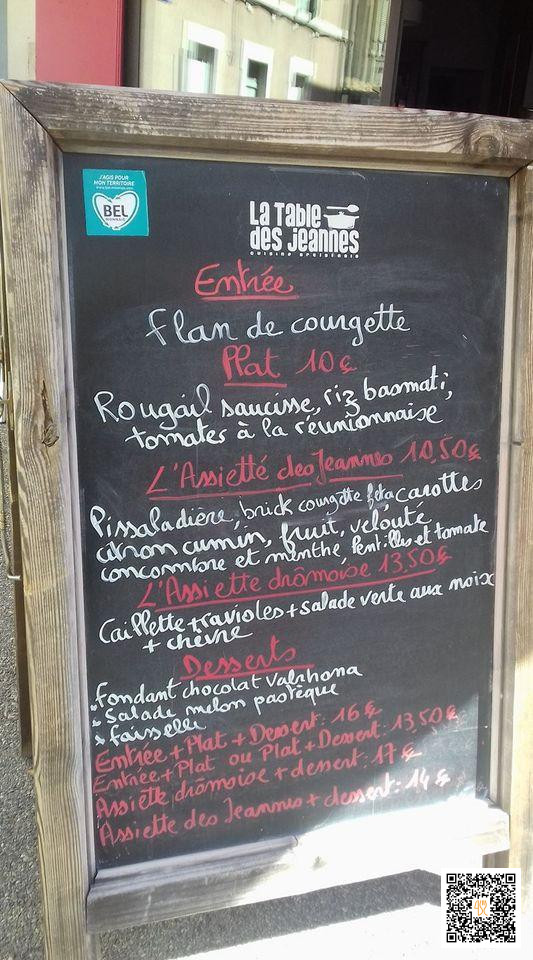 J'AGIS POUR
MON TERRITOIRE
BEL
MONNAIE
La Table
des Jeannes
Entrée
Flan de courgette
Plat 10€
Rougail saucisse, riz basmati,
tomates à la réunionnaise
L'Assiette des Jeannes 10,50€
Pissaladière, brick courgette feta carottes
citron cumin, fruit, velouté
concombre et menthe, lentilles et tomate
L'Assiette drômoise 13,50€
Caillette + ravioles + salade verte aux noix
+ chèvre
Desserts
* Fondant chocolat Valrhona
* Salade melon pastèque
* faisselle
Entrée + Plat + Dessert : 16€
Entrée + Plat ou Plat + Dessert : 13,50€
Assiette drômoise + dessert : 17€
Assiette des Jeannes + dessert : 14€